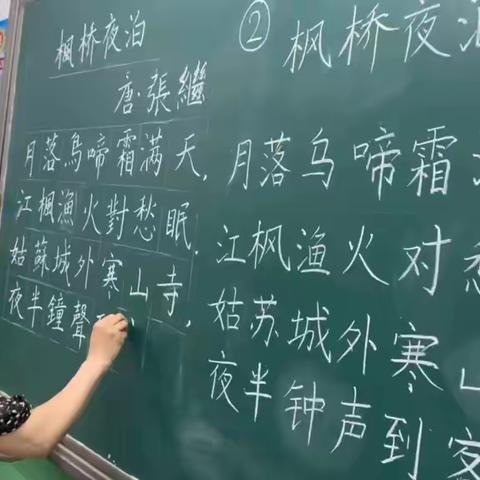 楓桥夜泊
唐·張繼
月落鳥啼霜满天，
江楓漁火對愁眠．
姑蘇城外寒山寺，
夜半鐘聲
② 枫桥夜泊
月落乌啼霜
江枫渔火对愁
姑苏城外寒山
夜半钟声到客